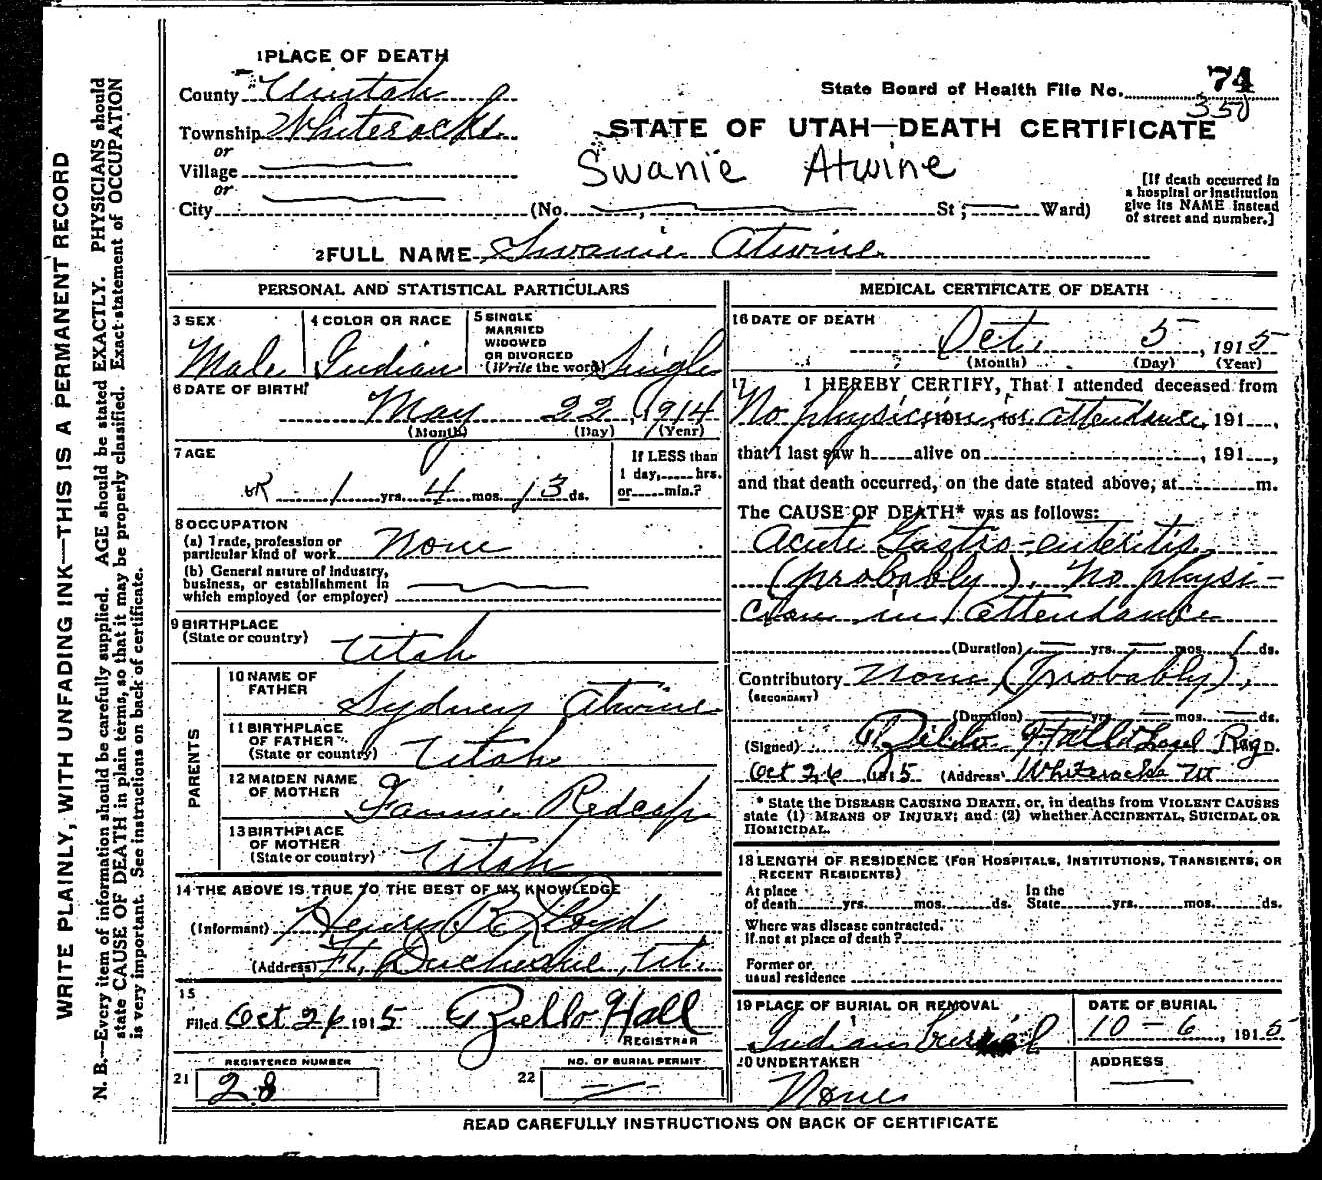 WRITE PLAINLY, WITH UNFADING INK—THIS IS A PERMANENT RECORD
N. B.—Every item of information should be carefully supplied. AGE should be stated EXACTLY. PHYSICIANS should
state CAUSE OF DEATH in plain terms, so that it may be properly classified. Exact statement of OCCUPATION
is very important. See instructions on back of certificate.
1 PLACE OF DEATH
County Uintah
Township Whiterocks
or
Village
or
City (No. St ; Ward)
State Board of Health File No. 74
350
STATE OF UTAH—DEATH CERTIFICATE
Swanie Atwine
[If death occurred in
a hospital or institution
give its NAME instead
of street and number.]
2 FULL NAME Swanie Atwine
PERSONAL AND STATISTICAL PARTICULARS
3 SEX Male
4 COLOR OR RACE Indian
5 SINGLE
MARRIED
WIDOWED
OR DIVORCED
(Write the word) Single
6 DATE OF BIRTH
May 22, 1914
(Month) (Day) (Year)
7 AGE
If LESS than
1 day, hrs.
or min.?
OR 1 yrs. 4 mos. 13 ds.
8 OCCUPATION
(a) Trade, profession or
particular kind of work None
(b) General nature of industry,
business, or establishment in
which employed (or employer)
9 BIRTHPLACE
(State or country) Utah
PARENTS
10 NAME OF
FATHER Sydney Atwine
11 BIRTHPLACE
OF FATHER
(State or country) Utah
12 MAIDEN NAME
OF MOTHER Fannie Redcap
13 BIRTHPLACE
OF MOTHER
(State or country) Utah
14 THE ABOVE IS TRUE TO THE BEST OF MY KNOWLEDGE
(Informant) Henry B. Lloyd
(Address) Ft. Duchesne, Ut.
15
Filed Oct 26 1915 Hall
REGISTRAR
REGISTERED NUMBER
21 28
NO. OF BURIAL PERMIT
22
MEDICAL CERTIFICATE OF DEATH
16 DATE OF DEATH
Oct. 5, 1915
(Month) (Day) (Year)
17 I HEREBY CERTIFY, That I attended deceased from
No physician in attendance, 191 ,
that I last saw h alive on , 191 ,
and that death occurred, on the date stated above, at m.
The CAUSE OF DEATH* was as follows:
Acute Gastro-enteritis
(probably). No physi-
cian in attendance
(Duration) yrs. mos. ds.
Contributory None (Probably).
(SECONDARY)
(Duration) yrs. mos. ds.
(Signed) Regd.
Oct 26, 1915 (Address) Whiterocks Ut
* State the DISEASE CAUSING DEATH, or, in deaths from VIOLENT CAUSES
state (1) MEANS OF INJURY; and (2) whether ACCIDENTAL, SUICIDAL OR
HOMICIDAL.
18 LENGTH OF RESIDENCE (FOR HOSPITALS, INSTITUTIONS, TRANSIENTS, OR
RECENT RESIDENTS)
At place
of death yrs. mos. ds.
In the
State yrs. mos. ds.
Where was disease contracted,
If not at place of death?
Former or
usual residence
19 PLACE OF BURIAL OR REMOVAL
Indian burial
DATE OF BURIAL
10-6, 1915
20 UNDERTAKER
None
ADDRESS
READ CAREFULLY INSTRUCTIONS ON BACK OF CERTIFICATE